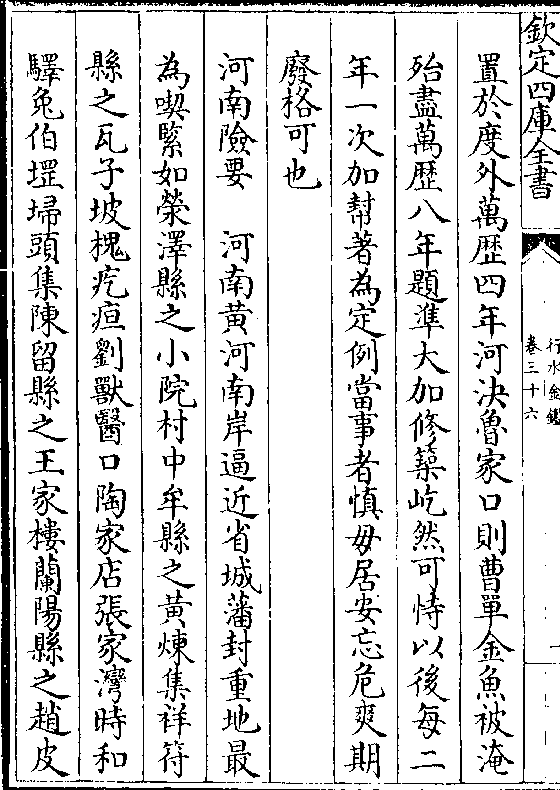 欽定四庫全書
行水金鑑
卷三十六
置於度外萬歷四年河決魯家口則曹單金魚被淹
殆盡萬歷八年題準大加修築屹然可恃以後每二
年一次加幫著為定例當事者慎毋居安忘危爽期
廢格可也
河南險要　河南黃河南岸逼近省城藩封重地最
為喫緊如滎澤縣之小院村中牟縣之黃煉集祥符
縣之瓦子坡槐疙疸劉獸醫口陶家店張家灣時和
驛兔伯堽埽頭集陳留縣之王家樓蘭陽縣之趙皮